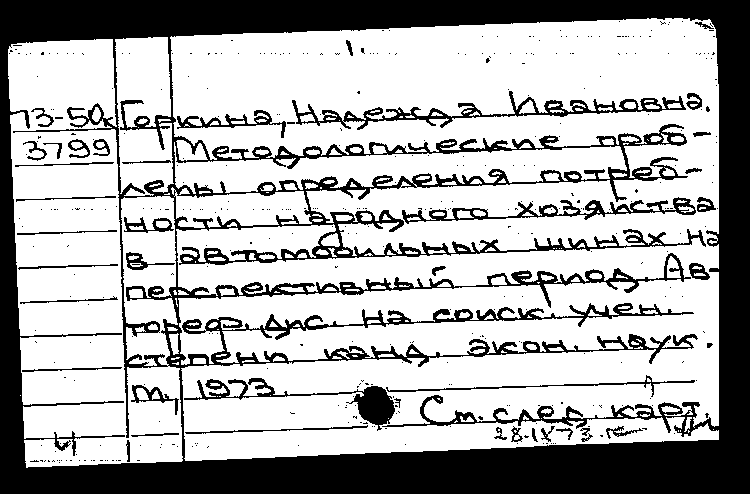 1.
73-50к Горкина, Надежда Ивановна.
3799 Методологические проб-
лемы определения потреб-
ности народного хозяйства
в автомобильных шинах на
перспективный период. Ав-
тореф. дис. на соиск. учен.
степени канд. экон. наук.
М., 1973.
См. след. карт.
28.IX-73